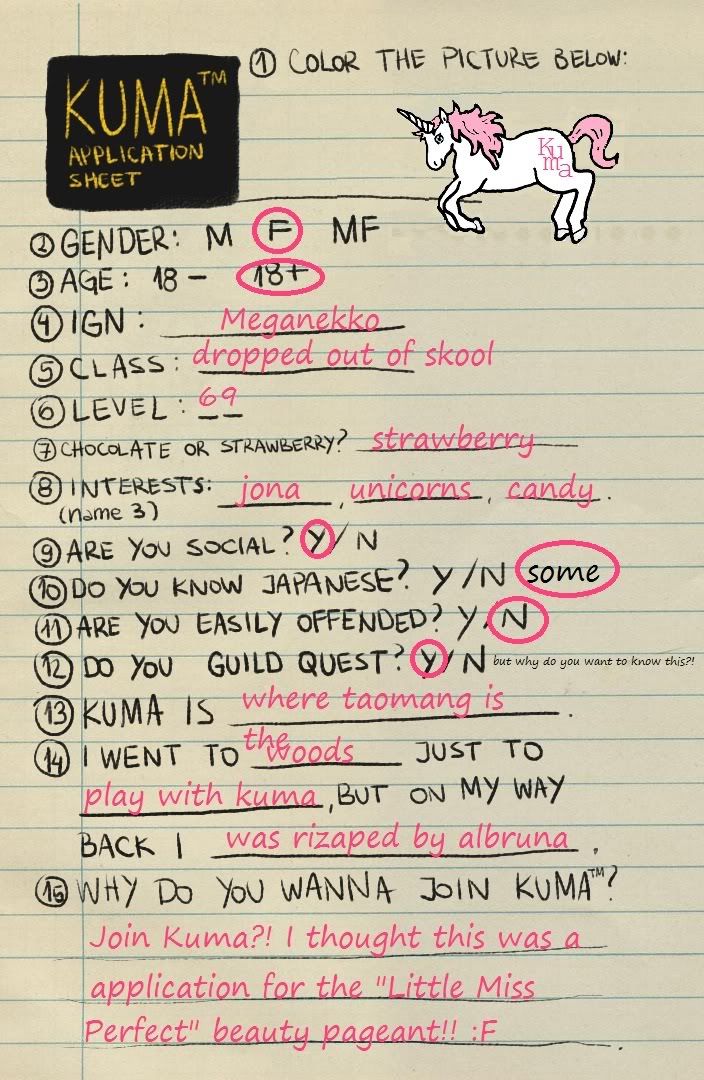 ① COLOR THE PICTURE BELOW:
KUMA™
APPLICATION
SHEET
Ku
ma
② GENDER: M F MF
③ AGE: 18- 18+
④ IGN: Meganekko
⑤ CLASS: dropped out of skool
⑥ LEVEL: 69
⑦ CHOCOLATE OR STRAWBERRY? strawberry
⑧ INTERESTS: jona, unicorns, candy.
(name 3)
⑨ ARE YOU SOCIAL? Y/N
⑩ DO YOU KNOW JAPANESE? Y/N some
⑪ ARE YOU EASILY OFFENDED? Y/N
⑫ DO YOU GUILD QUEST? Y/N but why do you want to know this?!
⑬ KUMA IS where taomang is.
⑭ I WENT TO the woods JUST TO
play with kuma, BUT ON MY WAY
BACK I was rizaped by albruna.
⑮ WHY DO YOU WANNA JOIN KUMA™?
Join Kuma?! I thought this was a
application for the "Little Miss
Perfect" beauty pageant!! :F